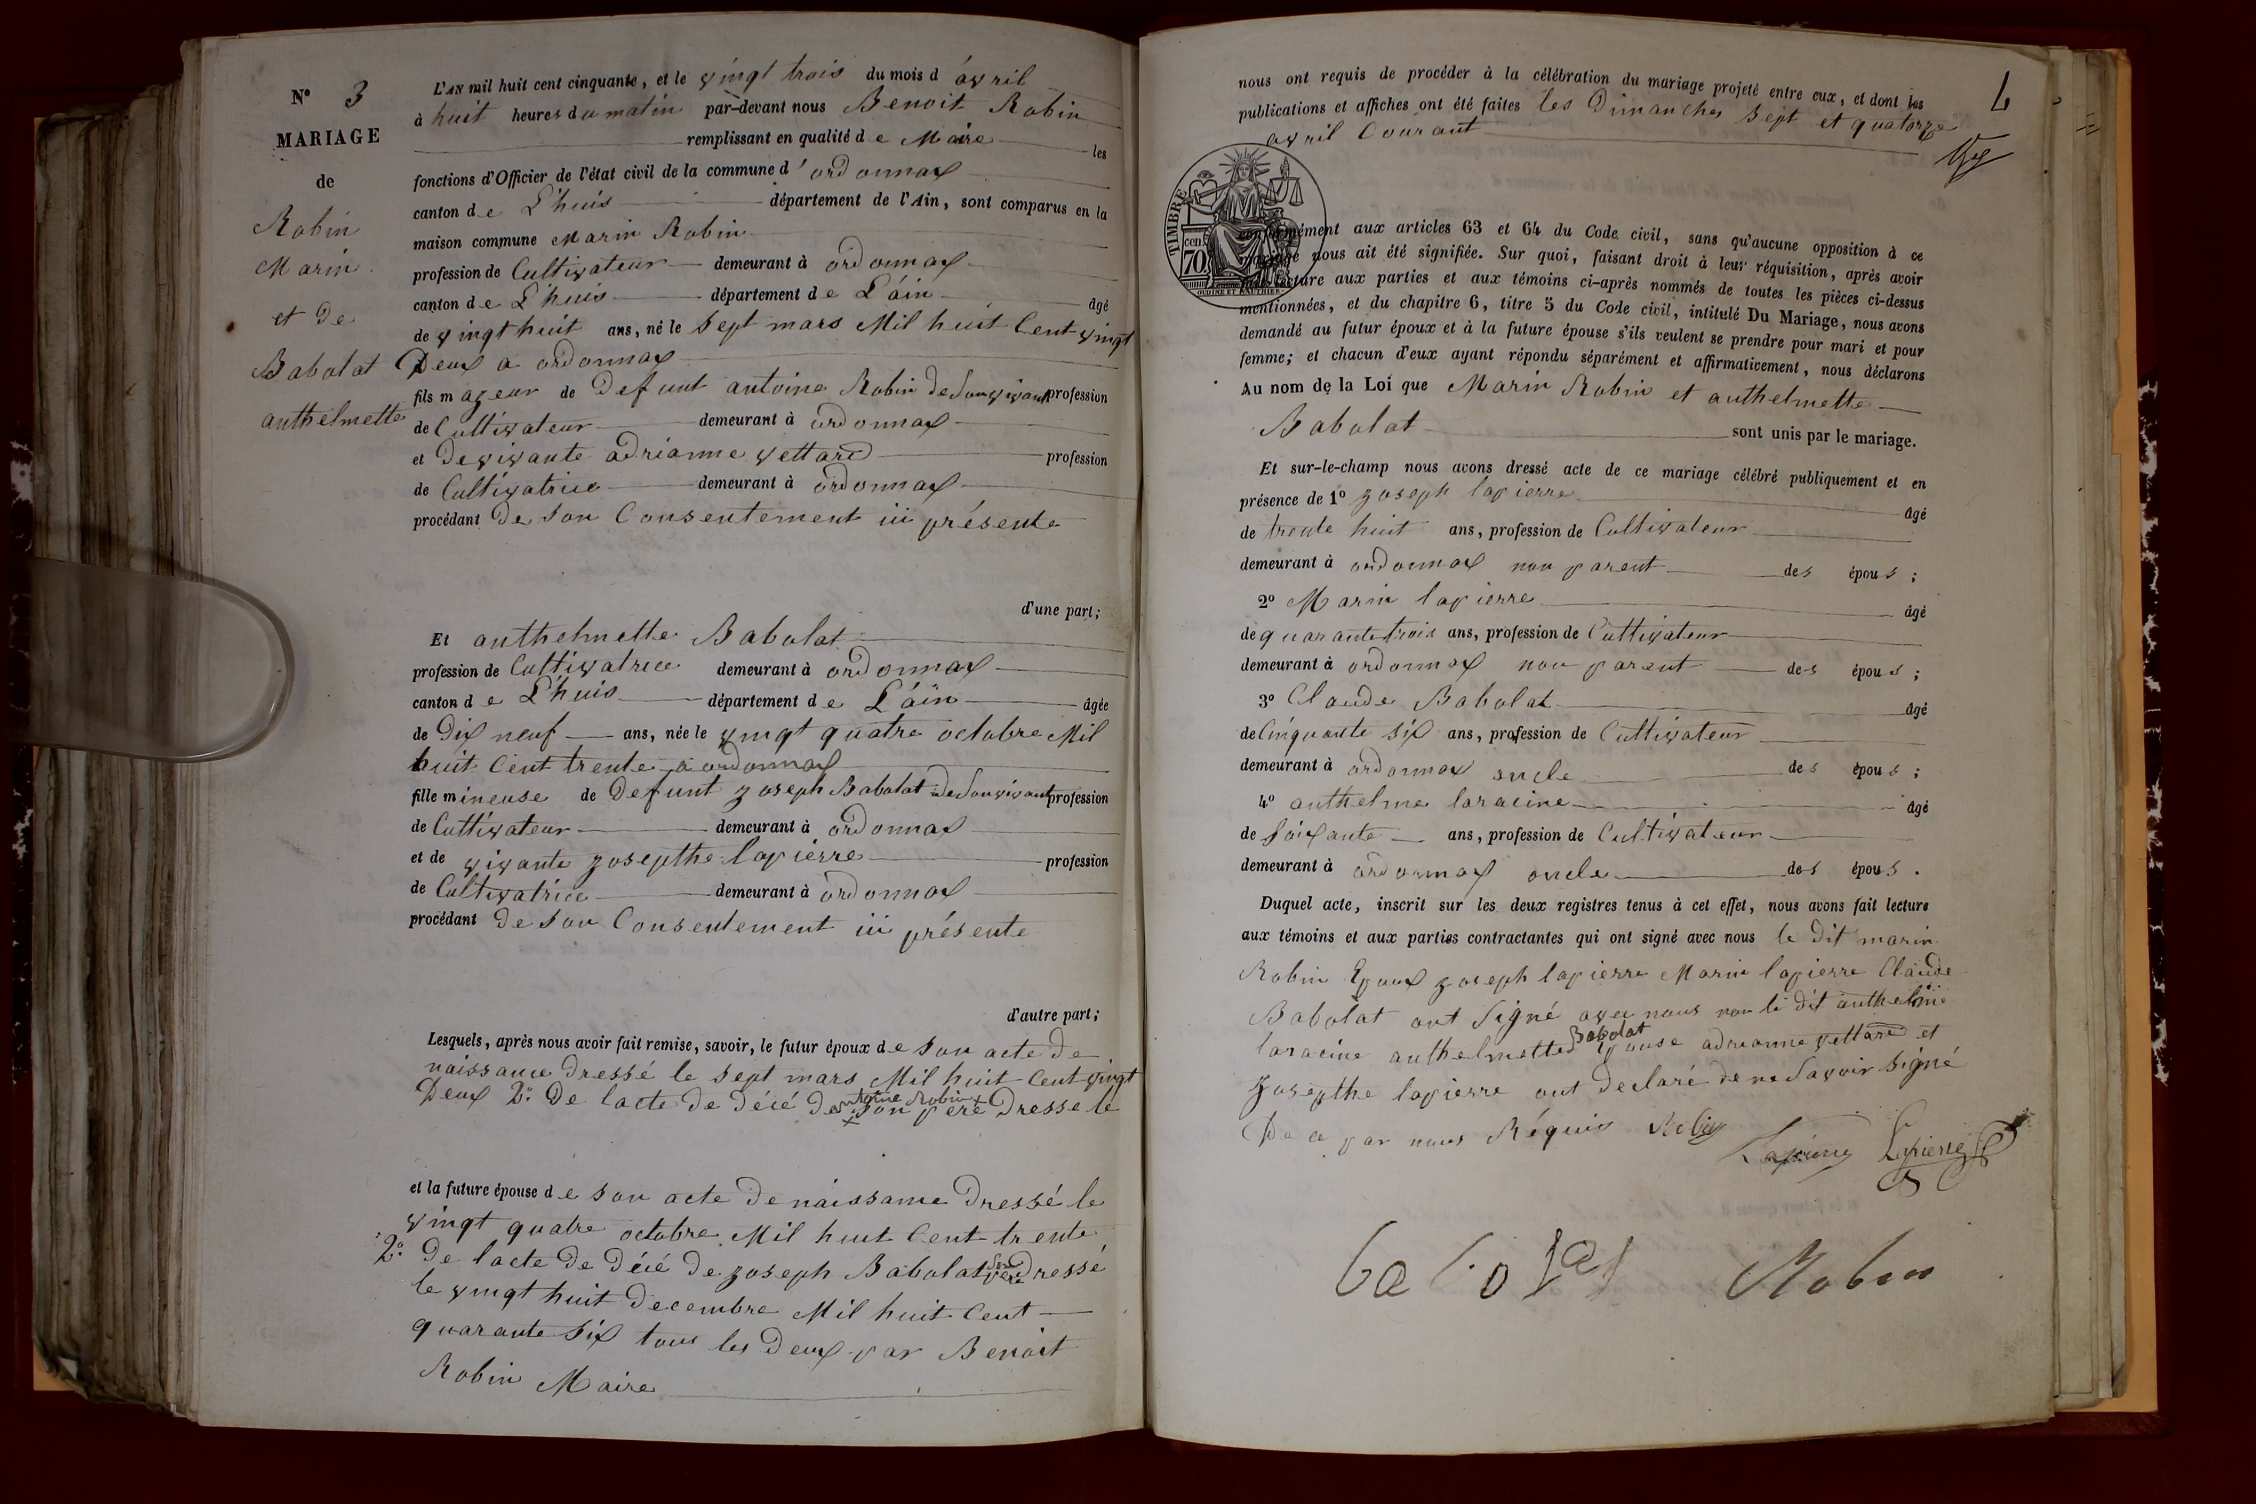 N° 3
MARIAGE
de
Robin
Marin
et De
Babolat
anthelmette
L'AN mil huit cent cinquante, et le vingt trois du mois d avril
à huit heures du matin par-devant nous Benoit Robin
remplissant en qualité de Maire les
fonctions d'Officier de l'état civil de la commune d' ordonnax
canton de L'huis département de l'Ain, sont comparus en la
maison commune Marin Robin
profession de Cultivateur demeurant à ordonnax
canton de L'huis département de L'áin âgé
de vingt huit ans, né le sept mars Mil huit Cent vingt
Deux a ordonnax
fils mageur de Defunt antoine Robin de Son vivant profession
de Cultivateur demeurant à ordonnax
et de vivante adrianne vettard profession
de Cultivatrice demeurant à ordonnax
procédant de son Consentement ici présente
d'une part;
Et anthelmette Babolat
profession de Cultivatrice demeurant à ordonnax
canton de L'huis département de L'áin âgée
de Dix neuf ans, née le vingt quatre octobre Mil
huit Cent trente a ordonnax
fille mineuse de Defunt Joseph Babolat de Son vivant profession
de Cultivateur demeurant à ordonnax
et de vivante Josepthe lapierre profession
de Cultivatrice demeurant à ordonnax
procédant de son Consentement ici présente
d'autre part;
Lesquels, après nous avoir fait remise, savoir, le futur époux de son acte de
naissance dressé le sept mars Mil huit Cent vingt
Deux 2° De lacte de décé de antoine Robin son père Dresse le
et la future épouse de son acte de naissance dressé le
vingt quatre octobre Mil huit Cent trente
2° De lacte de décé de Joseph Babolat son père dressé
le vingt huit Decembre Mil huit Cent
quarante six tous les deux par Benoit
Robin Maire
4
nous ont requis de procéder à la célébration du mariage projeté entre eux, et dont les
publications et affiches ont été faites les Dimanches sept et quatorze
avril Courant
TIMBRE
cen. 70
OUDINE ET GAUTHIER
conformément aux articles 63 et 64 du Code civil, sans qu'aucune opposition à ce
mariage nous ait été signifiée. Sur quoi, faisant droit à leur réquisition, après avoir
fait lecture aux parties et aux témoins ci-après nommés de toutes les pièces ci-dessus
mentionnées, et du chapitre 6, titre 5 du Code civil, intitulé Du Mariage, nous avons
demandé au futur époux et à la future épouse s'ils veulent se prendre pour mari et pour
femme; et chacun d'eux ayant répondu séparément et affirmativement, nous déclarons
Au nom de la Loi que Marin Robin et anthelmette
Babolat sont unis par le mariage.
Et sur-le-champ nous avons dressé acte de ce mariage célébré publiquement et en
présence de 1° Joseph lapierre âgé
de trente huit ans, profession de Cultivateur
demeurant à ordonnax non parent des épous;
2° Marin lapierre âgé
de quarante trois ans, profession de Cultivateur
demeurant à ordonnax non parent des épous;
3° Claude Babolat âgé
de Cinquante six ans, profession de Cultivateur
demeurant à ordonnax oncle des épous;
4° anthelme laracine âgé
de soixante ans, profession de Cultivateur
demeurant à ordonnax oncle des épous.
Duquel acte, inscrit sur les deux registres tenus à cet effet, nous avons fait lecture
aux témoins et aux parties contractantes qui ont signé avec nous le dit marin
Robin Epoux Joseph lapierre Marin lapierre Claude
Babolat ont signé avec nous non le dit anthelme
laracine anthelmette Babolat Epouse adrianne vettard et
Josepthe lapierre ont declaré de ne savoir signé
De ce par nous Réquis Robin
Lapierre Lapierre
babolat Robin